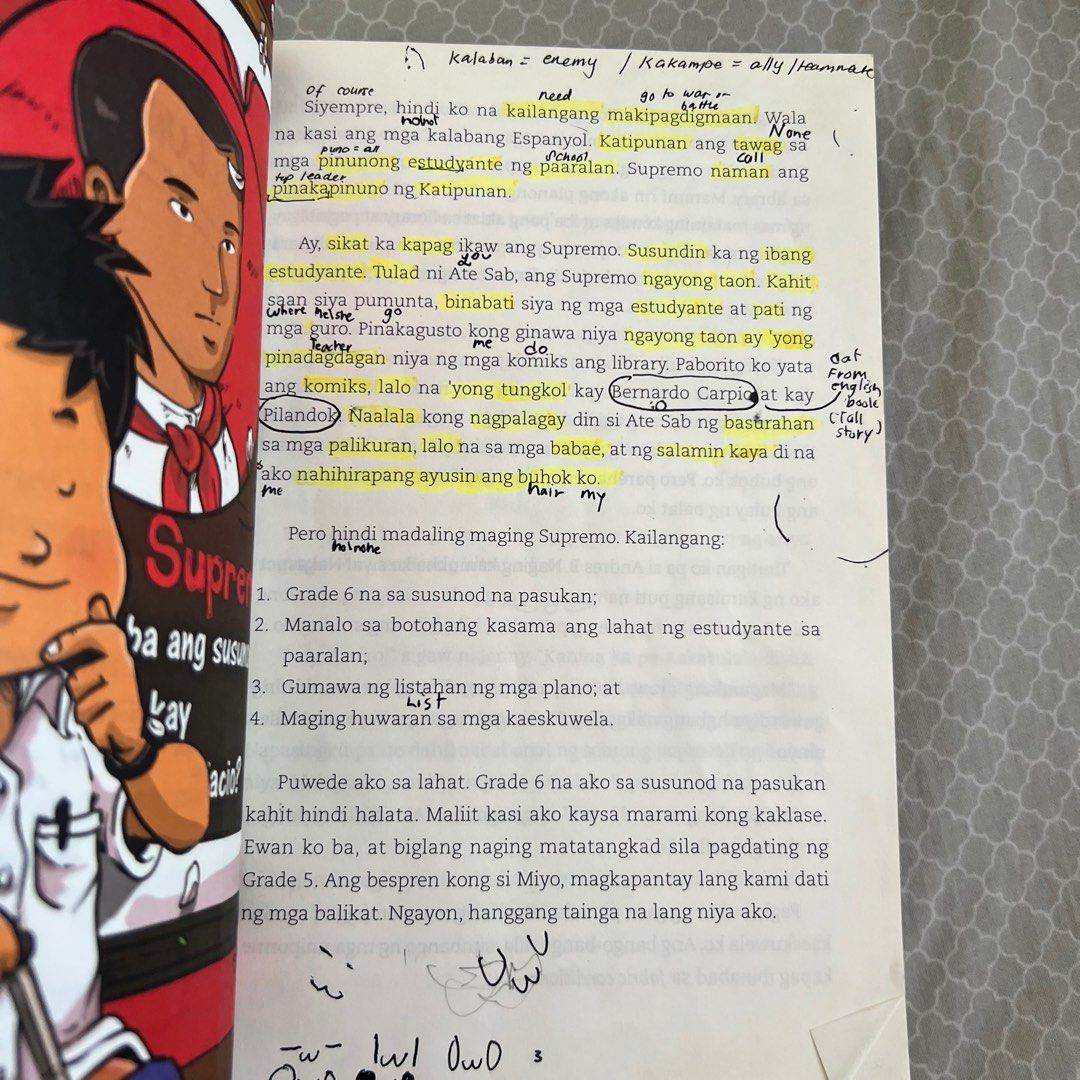 kalaban = enemy / kakampe = ally / teammate
of course need go to war or battle
Siyempre, hindi ko na kailangang makipagdigmaan. Wala
None
na kasi ang mga kalabang Espanyol. Katipunan ang tawag sa
puno = all school call
mga pinunong estudyante ng paaralan. Supremo naman ang
top leader
pinakapinuno ng Katipunan.
Ay, sikat ka kapag ikaw ang Supremo. Susundin ka ng ibang
you
estudyante. Tulad ni Ate Sab, ang Supremo ngayong taon. Kahit
saan siya pumunta, binabati siya ng mga estudyante at pati ng
where he/she go
mga guro. Pinakagusto kong ginawa niya ngayong taon ay 'yong
Teacher me do
pinadagdagan niya ng mga komiks ang library. Paborito ko yata
ang komiks, lalo na 'yong tungkol kay Bernardo Carpio at kay
dat
From
english
book
(Tall
story)
Pilandok. Naalala kong nagpalagay din si Ate Sab ng basurahan
sa mga palikuran, lalo na sa mga babae, at ng salamin kaya di na
ako nahihirapang ayusin ang buhok ko.
me hair my
Pero hindi madaling maging Supremo. Kailangang:
1. Grade 6 na sa susunod na pasukan;
2. Manalo sa botohang kasama ang lahat ng estudyante sa
paaralan;
3. Gumawa ng listahan ng mga plano; at
List
4. Maging huwaran sa mga kaeskuwela.
Puwede ako sa lahat. Grade 6 na ako sa susunod na pasukan
kahit hindi halata. Maliit kasi ako kaysa marami kong kaklase.
Ewan ko ba, at biglang naging matatangkad sila pagdating ng
Grade 5. Ang bespren kong si Miyo, magkapantay lang kami dati
ng mga balikat. Ngayon, hanggang tainga na lang niya ako.
UwU
-w- IwI OwO 3
Supre
ba ang susu
kay
acio?